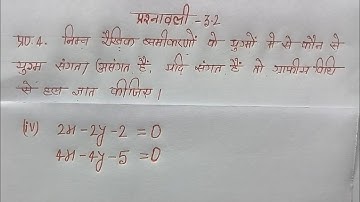 प्रश्नावली - 3.2
प्र० 4. निम्न रैखिक समीकरणों के युग्मों में से कौन से
युग्म संगत / असंगत हैं, यदि संगत हैं तो ग्राफीय विधि
से हल ज्ञात कीजिए।
(iv) 2x - 2y - 2 = 0
4x - 4y - 5 = 0